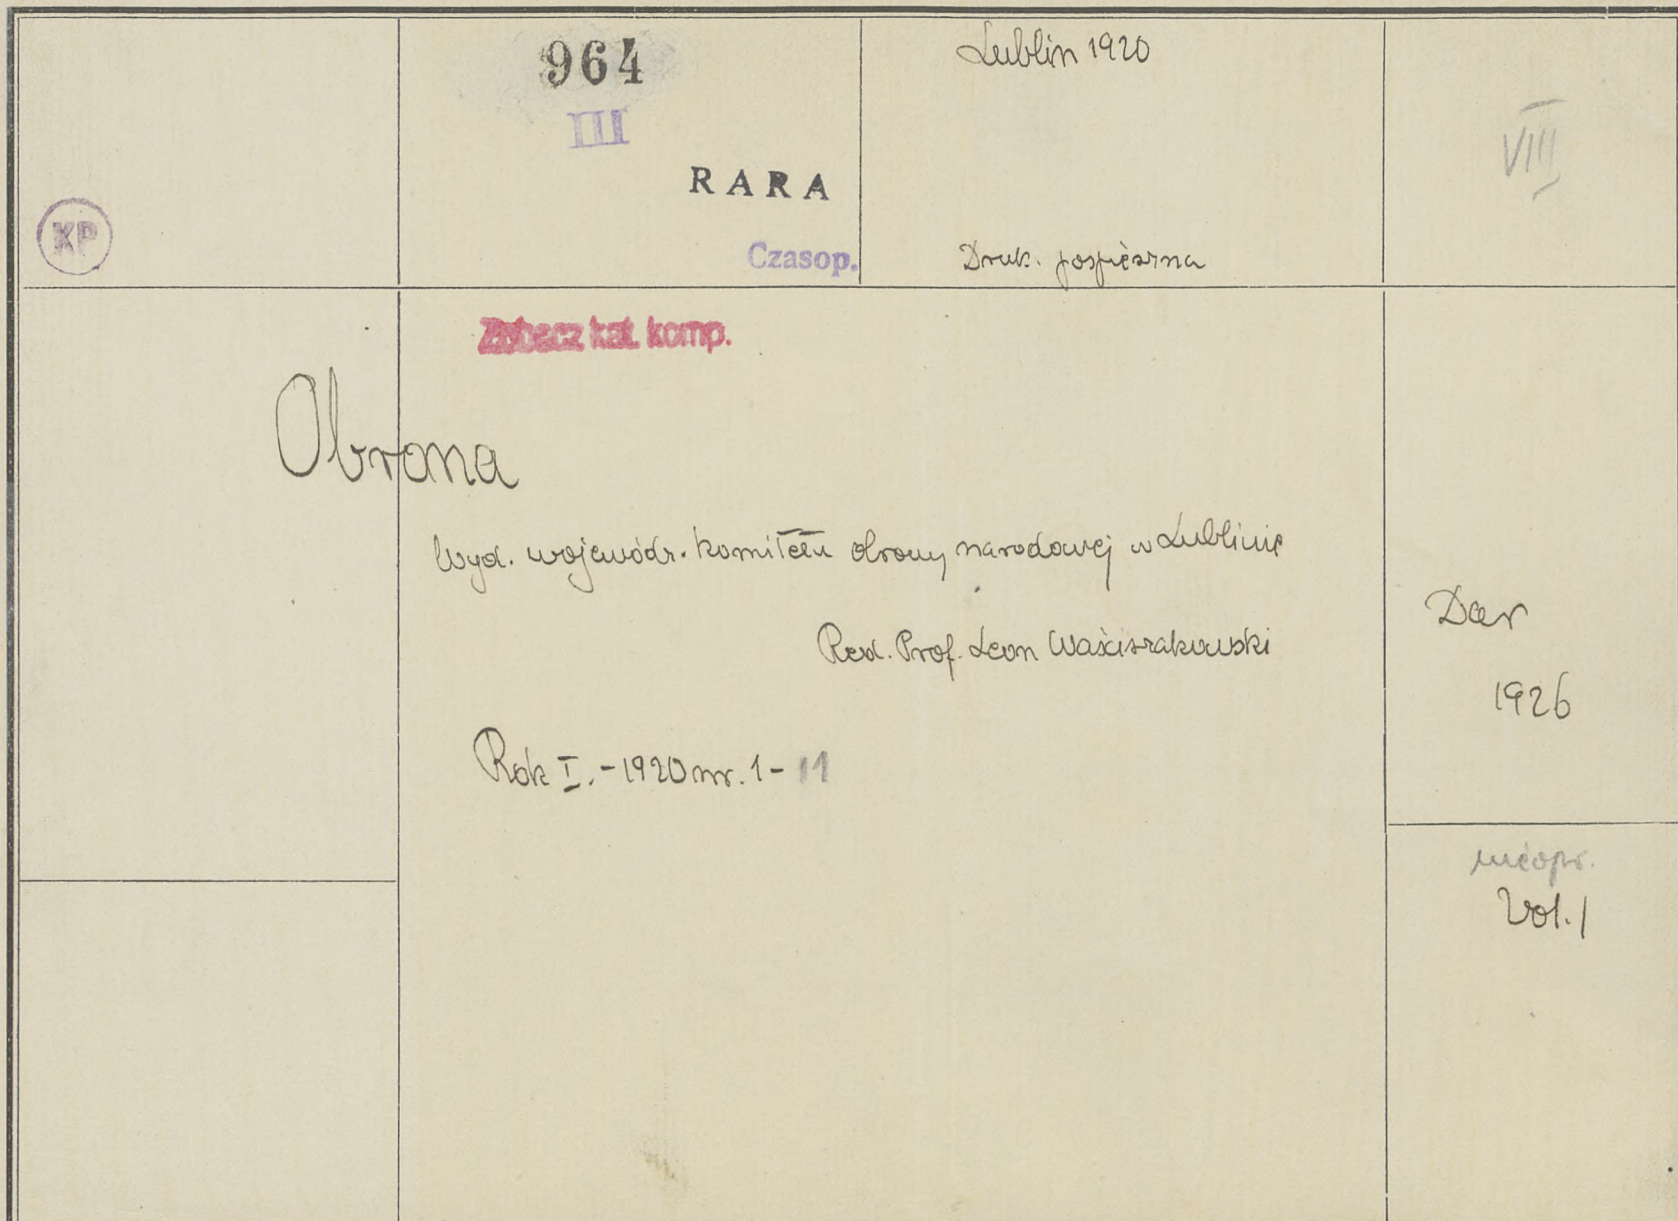 964
III
RARA
Czasop.
KP
Lublin 1920
Druk. pospieszna
VIII
Zobacz kat. komp.
Obrona
Wyd. wojewódz. komitetu obrony narodowej w Lublinie
Red. Prof. Leon
Rok I. - 1920 nr. 1 - 11
Dar
1926
nieopr.
Vol. 1